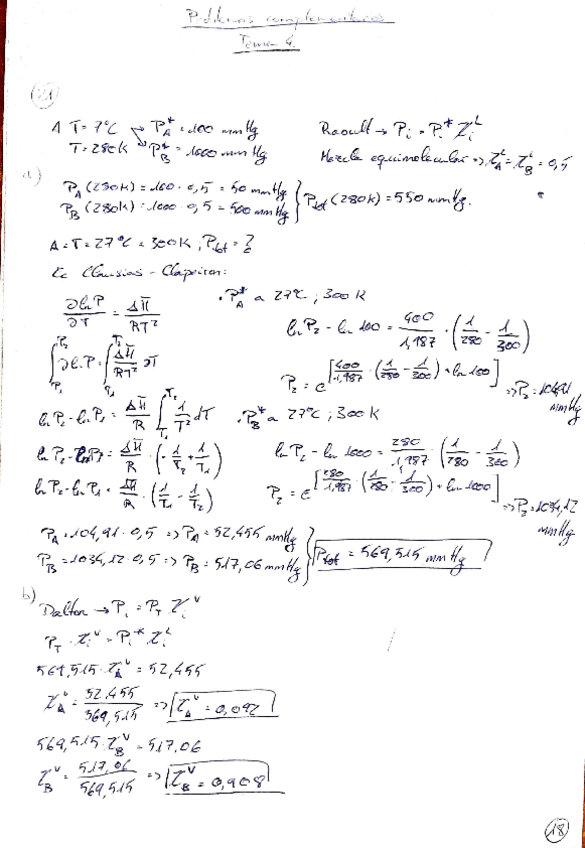 Problemas complementarios
Tema 4.
(21)
A T = 7ºC → P*A = 100 mmHg
T = 280K → P*B = 1000 mmHg
Raoult → Pi = Pi* χiL
Mezcla equimolecular => χAL = χBL = 0,5
a)
PA (280K) = 100 · 0,5 = 50 mmHg
PB (280K) = 1000 · 0,5 = 500 mmHg
Ptot (280K) = 550 mmHg.
A = T = 27ºC = 300K ; Ptot = ?
Ec Clausius - Clapeiron:
∂lnP/∂T = ΔH̄/RT²
∫P1P2 ∂lnP = ∫T1T2 ΔH̄/RT² ∂T
lnP2 - lnP1 = ΔH̄/R ∫T1T2 1/T² dT
lnP2 - lnP1 = ΔH̄/R · (-1/T2 + 1/T1)
lnP2 - lnP1 = ΔH̄/R · (1/T1 - 1/T2)
· P*A a 27ºC ; 300K
lnP2 - ln 100 = 400/1,987 · (1/280 - 1/300)
P2 = e^[400/1,987 · (1/280 - 1/300) + ln 100] => P2 = 104,91 mmHg
· P*B a 27ºC ; 300K
lnP2 - ln 1000 = 280/1,987 · (1/280 - 1/300)
P2 = e^[280/1,987 · (1/280 - 1/300) + ln 1000] => P2 = 1034,12 mmHg
PA = 104,91 · 0,5 => PA = 52,455 mmHg
PB = 1034,12 · 0,5 => PB = 517,06 mmHg
Ptot = 569,515 mmHg
b)
Dalton → Pi = PT χiV
PT · χiV = Pi* χiL
569,515 · χAV = 52,455
χAV = 52,455/569,515 => χAV = 0,092
569,515 · χBV = 517,06
χBV = 517,06/569,515 => χBV = 0,908
18